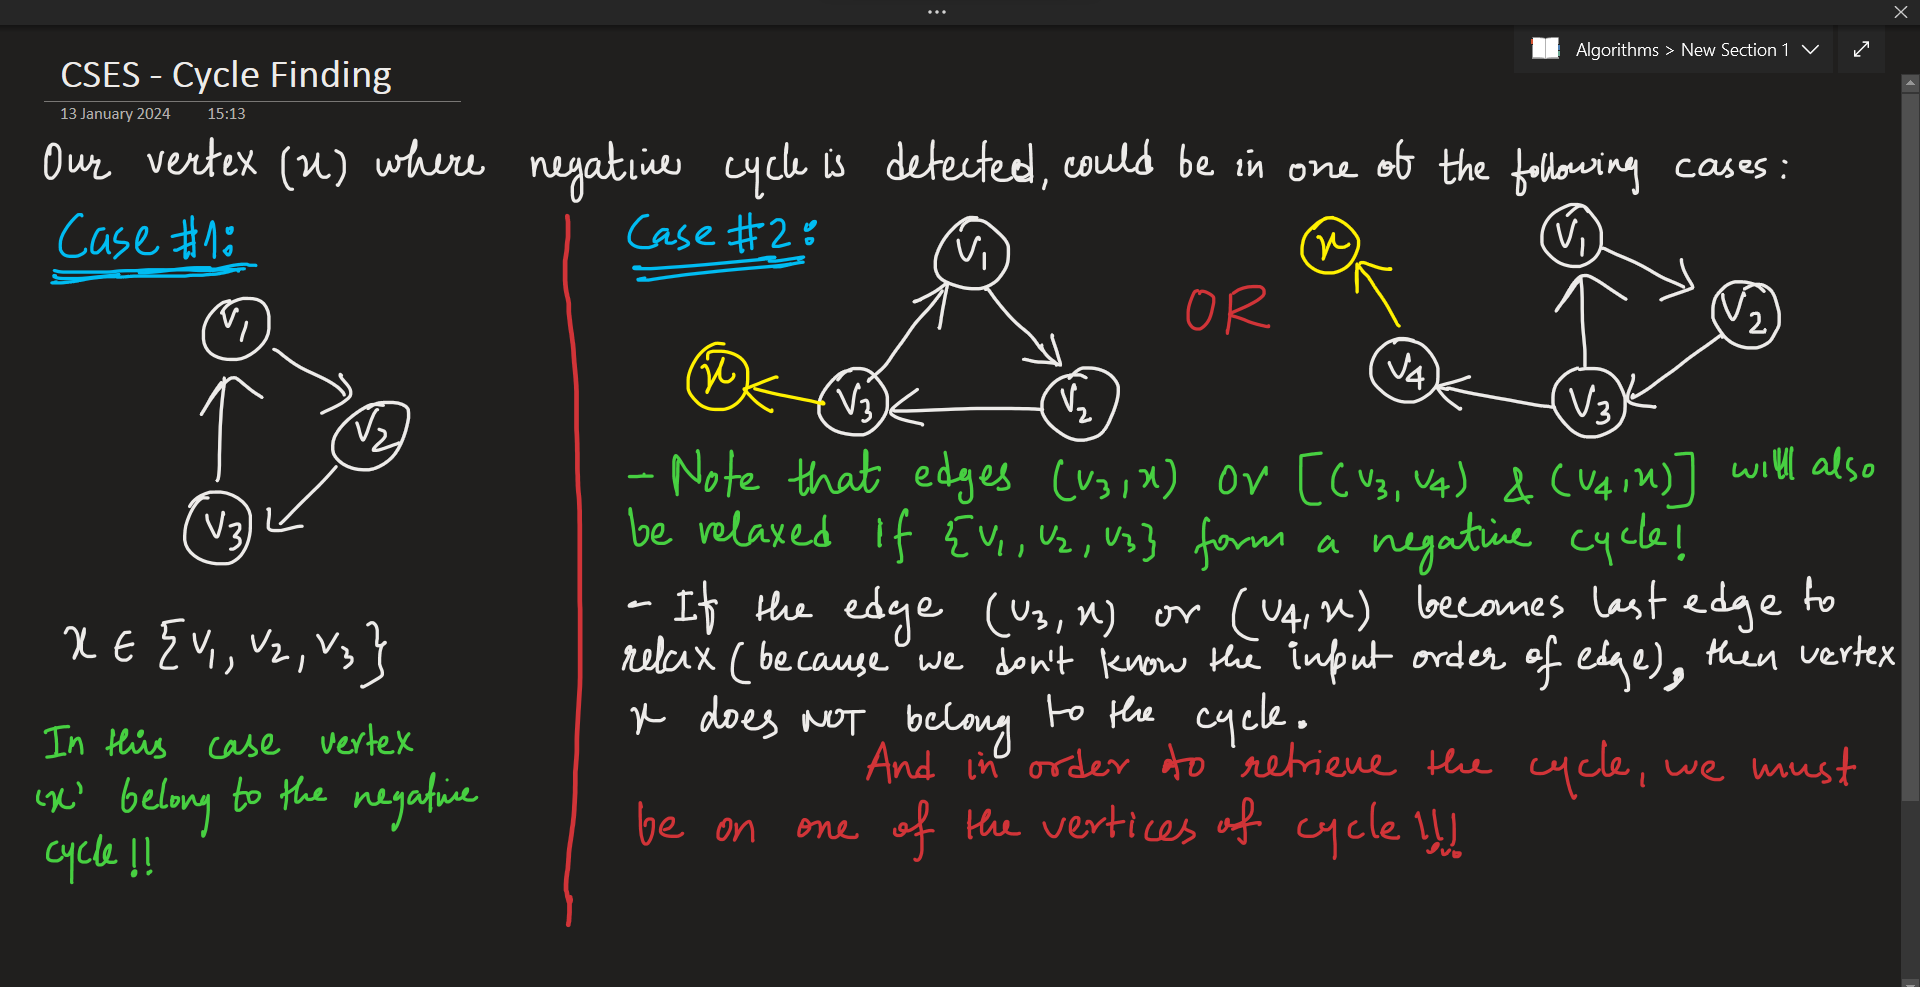 ...
Algorithms > New Section 1
CSES - Cycle Finding
13 January 2024 15:13
Our vertex (x) where negative cycle is detected, could be in one of the following cases:
Case #1:
V1
V2
V3
x ∈ {V1, V2, V3}
In this case vertex
'x' belong to the negative
cycle!!
Case #2:
V1
x
V3
V2
OR
x
V1
V2
V4
V3
- Note that edges (V3, x) or [(V3, V4) & (V4, x)] will also
be relaxed if {V1, V2, V3} form a negative cycle!
- If the edge (V3, x) or (V4, x) becomes last edge to
relax (because we don't know the input order of edge), then vertex
x does NOT belong to the cycle.
And in order to retrieve the cycle, we must
be on one of the vertices of cycle!!!